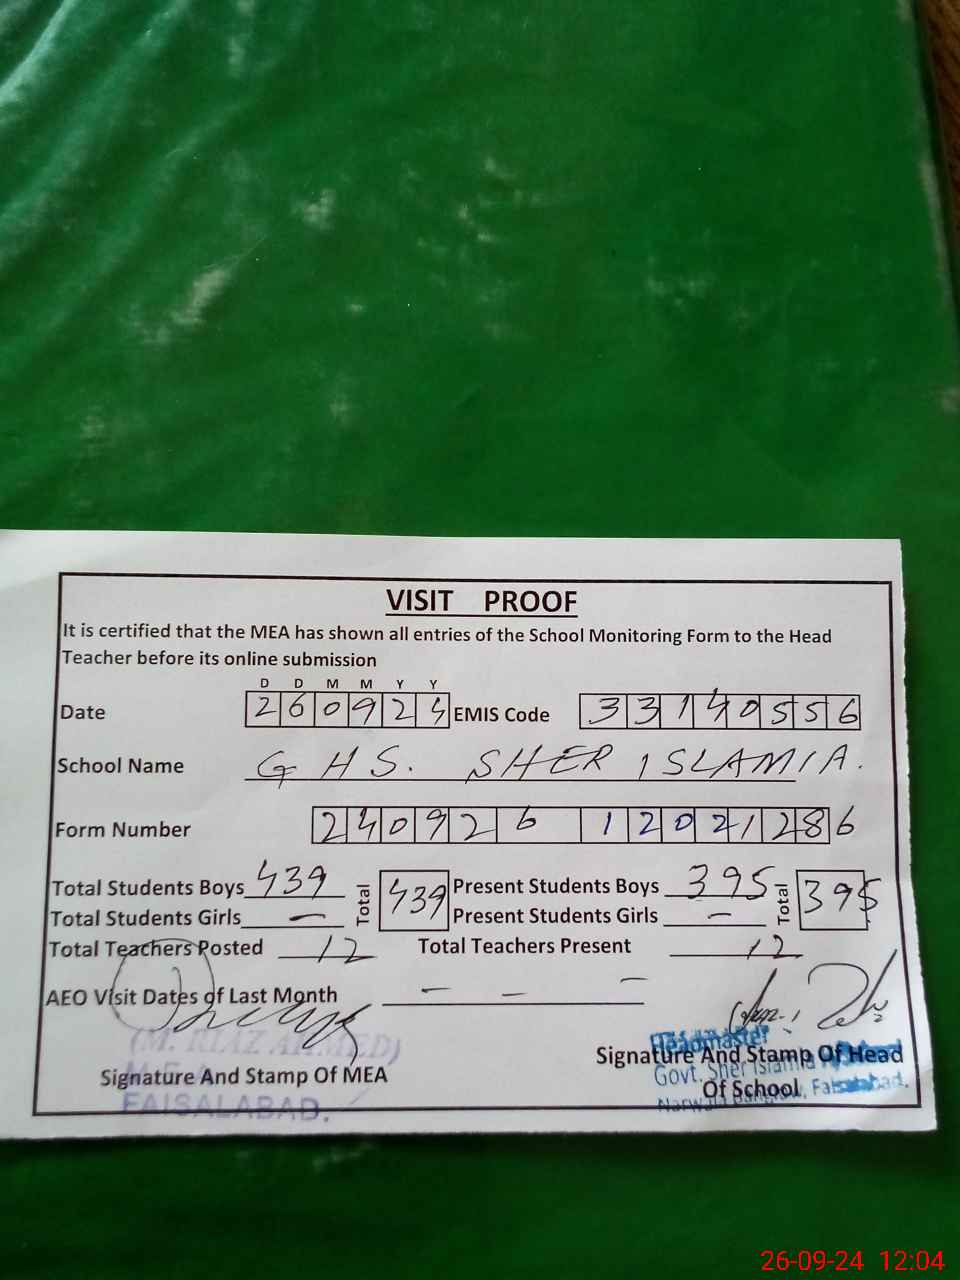 VISIT PROOF
It is certified that the MEA has shown all entries of the School Monitoring Form to the Head
Teacher before its online submission
D D M M Y Y
Date 260924 EMIS Code 33140556
School Name GHS. SHER ISLAMIA.
Form Number 240926 12021286
Total Students Boys 439 Total 439 Present Students Boys 395 Total 395
Total Students Girls — Present Students Girls —
Total Teachers Posted 12 Total Teachers Present 12
AEO Visit Dates of Last Month — — —
(M. RIAZ AHMED)
M.E.A
FAISALABAD.
Signature And Stamp Of MEA
Headmaster
Govt. Sher Islamia
Narwala Banglow, Faisalabad.
Signature And Stamp Of Head
Of School
26-09-24 12:04